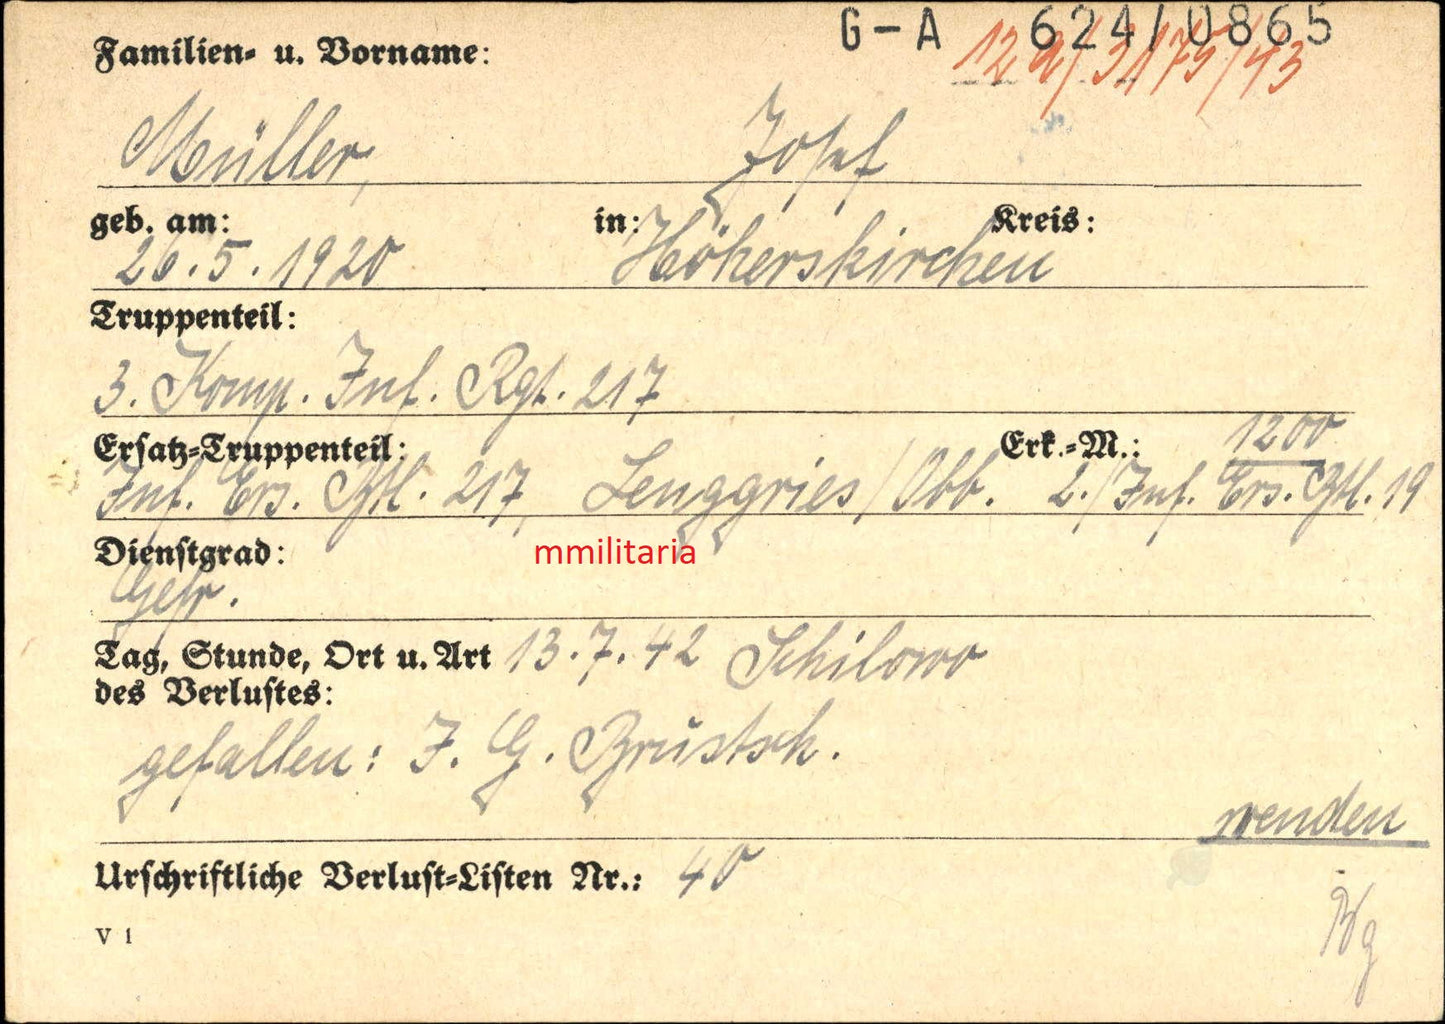 G-A 624/0865
Familien- u. Vorname:
Müller, Josef
geb. am: in: Kreis:
26.5.1920 Höherskirchen
Truppenteil:
3. Komp. Inf. Rgt. 217
Ersatz-Truppenteil: Erk.-M.: 1200
Inf. Ers. Btl. 217, Lenggries/Obb. 2./Inf. Ers. Btl. 19
Dienstgrad:
mmilitaria
Gefr.
Tag, Stunde, Ort u. Art 13.7.42 Schilowo
des Verlustes:
gefallen: I. G. Brustsch.
wenden
Urschriftliche Verlust-Listen Nr.: 40
V 1